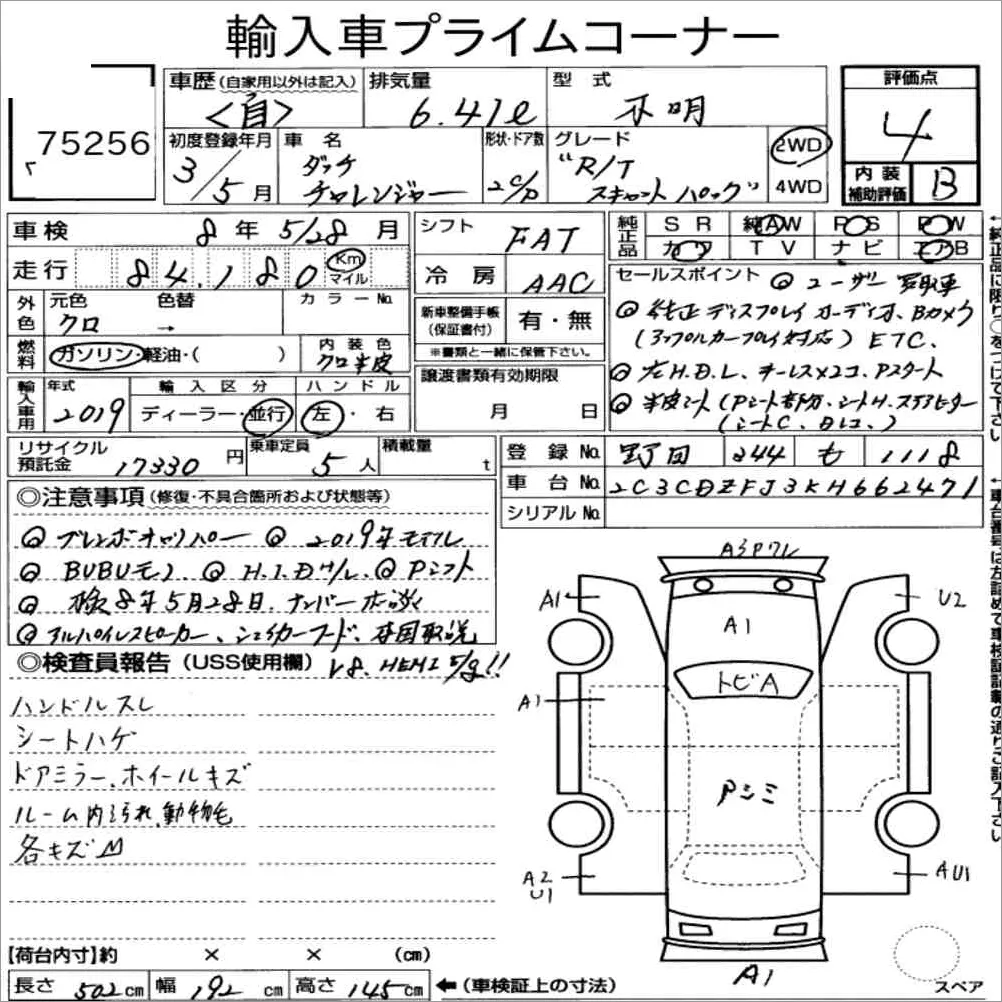 輸入車プライムコーナー
75256
車歴(自家用以外は記入) 排気量 型式 評価点
<自> 6.41ℓ 不明 4
初度登録年月 車名 形状・ドア数 グレード 2WD
3/5月 ダッヂ チャレンジャー 2C/D "R/T スキャットパック" 4WD
内装補助評価 B
車検 8年5/28月 シフト FAT
純正品 SR 純AW PS PW
カワ TV ナビ エアB
走行 84,180 Km マイル 冷房 AAC
外色 元色 色替 カラーNo.
クロ →
新車整備手帳(保証書付) 有・無
※書類と一緒に保管下さい。
燃料 ガソリン・軽油・( ) 内装色 クロ半皮
輸入車用 年式 輸入区分 ハンドル
2019 ディーラー・並行 左・右
譲渡書類有効期限
月 日
セールスポイント ◎ユーザー買取車
◎純正ディスプレイオーディオ、Bカメラ
(アップルカープレイ対応) ETC.
◎左H.D.L、キーレス×2コ、Pスタート
◎半皮シート(Pシート部分、シートH、ステアヒーター
(シートC、Dレコ、)
リサイクル預託金 17330円 乗車定員 5人 積載量 t
登録No. 野田 344 も 1118
車台No. 2C3CDZFJ3KH662471
シリアルNo.
◎注意事項(修復・不具合箇所および状態等)
◎ブレンボキャリパー ◎2019年モデル
◎BUBUモノ ◎H.I.D H/L ◎Pシフト
◎検8年5月28日、ナンバー
◎アルパインスピーカー、シェイカーフード、本国取説
V8. HEMI !!
◎検査員報告(USS使用欄)
ハンドルスレ
シートハゲ
ドアミラー、ホイールキズ
ルーム内汚れ、動物毛
各キズ凹
A3Pワレ
A1
U2
A1
トビA
A1
Pシミ
A2
U1
AU1
A1
スペア
【荷台内寸】約 × × (cm)
長さ 502cm 幅 192cm 高さ 145cm ←(車検証上の寸法)
←純正品に限り○をつけて下さい
←車台番号は左詰めで車検証記載の通りご記入下さい